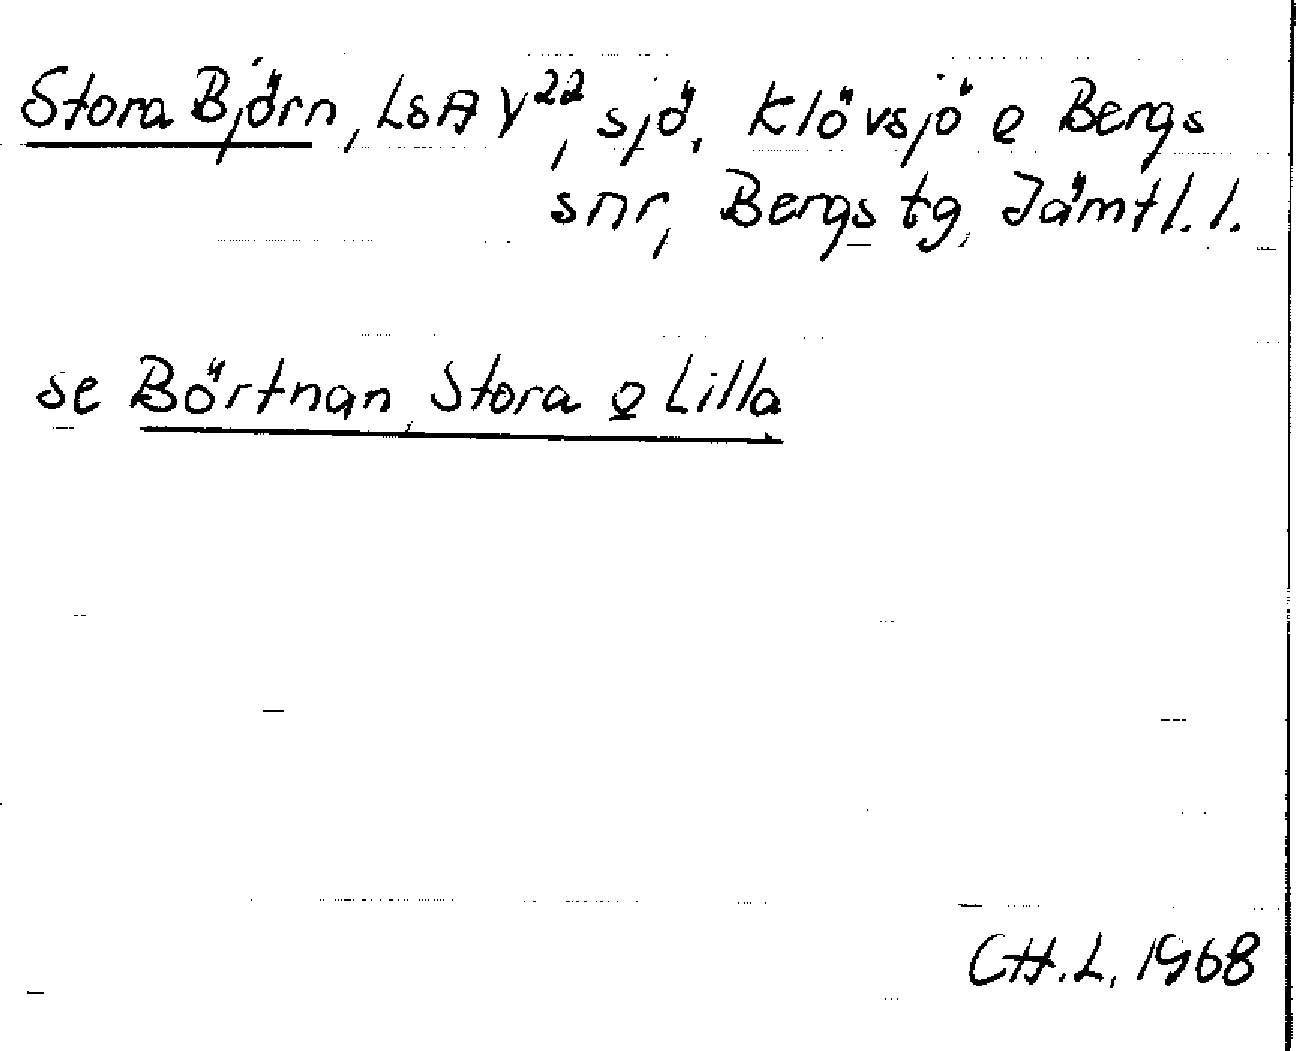 Stora Björn, LsA V22, sjö, Klövsjö o Bergs
snr, Bergs tg, Jämtl. l.
se Börtnan, Stora o Lilla
CH.L, 1968